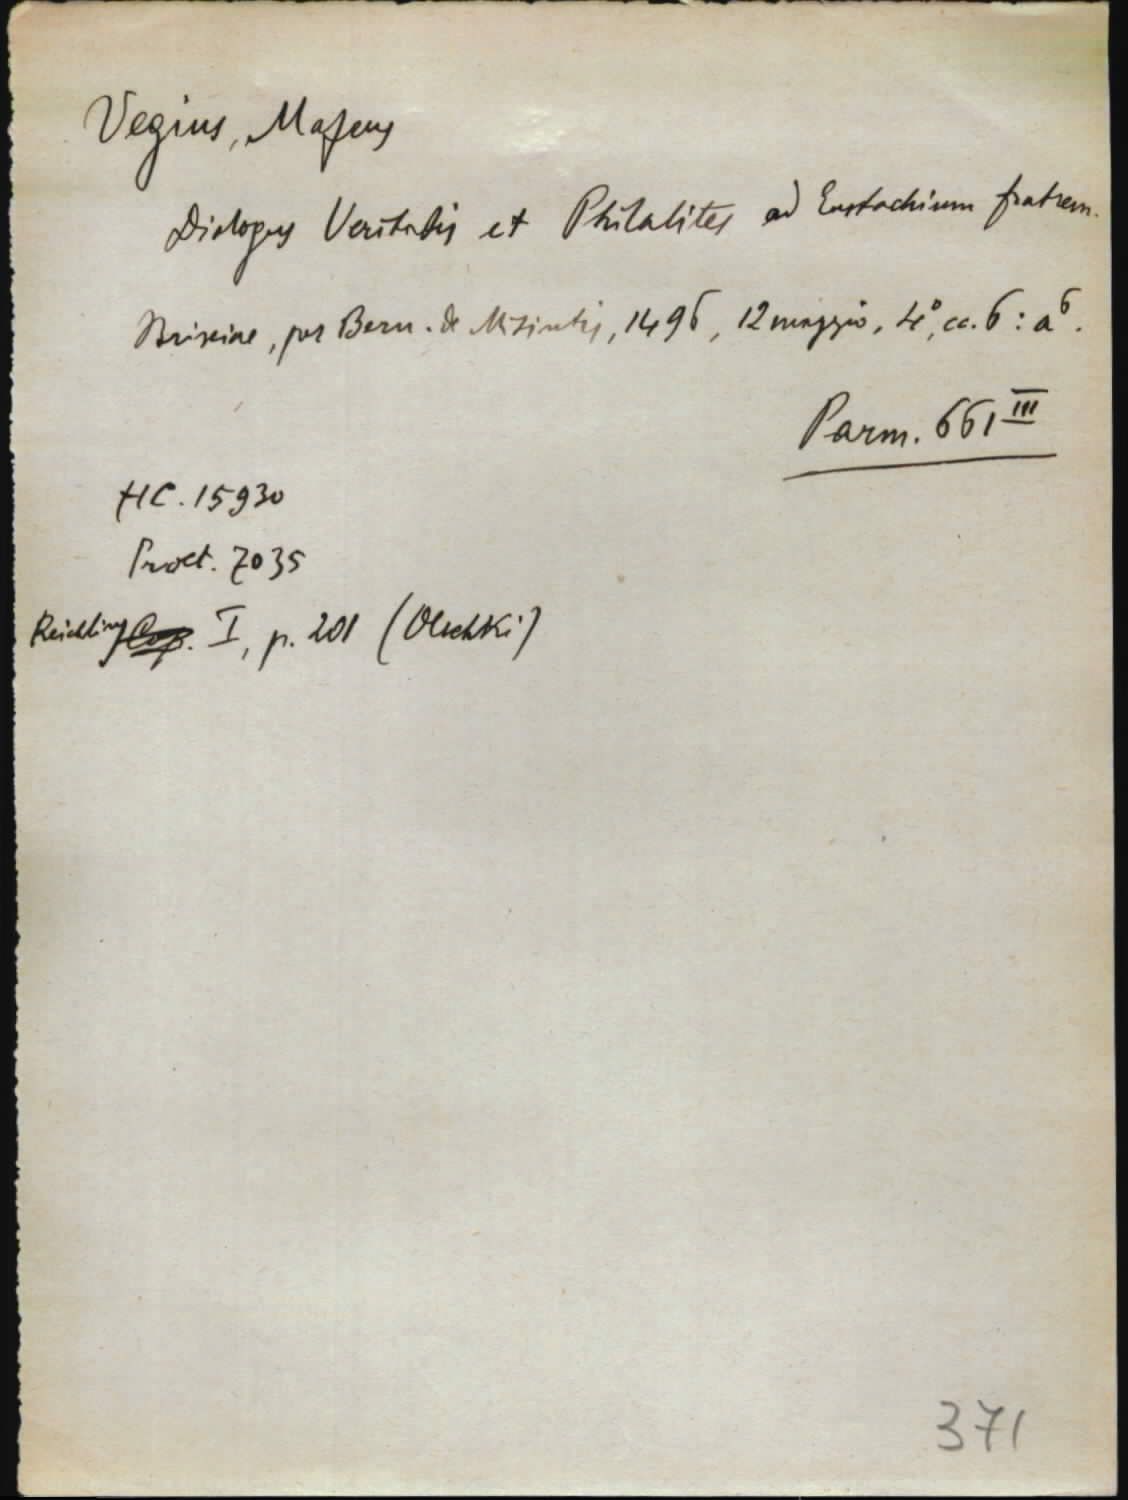 Vegius, Mafeus
Dialogus Veritatis et Philalites ad Eustachium fratrem.
Brixiae, per Bern. de Misintis, 1496, 12 maggio, 4°, cc. 6 : a⁶.
Parm. 661 III
HC. 15930
Proct. 7035
Reichling Cop. I, p. 201 (Olschki)
371